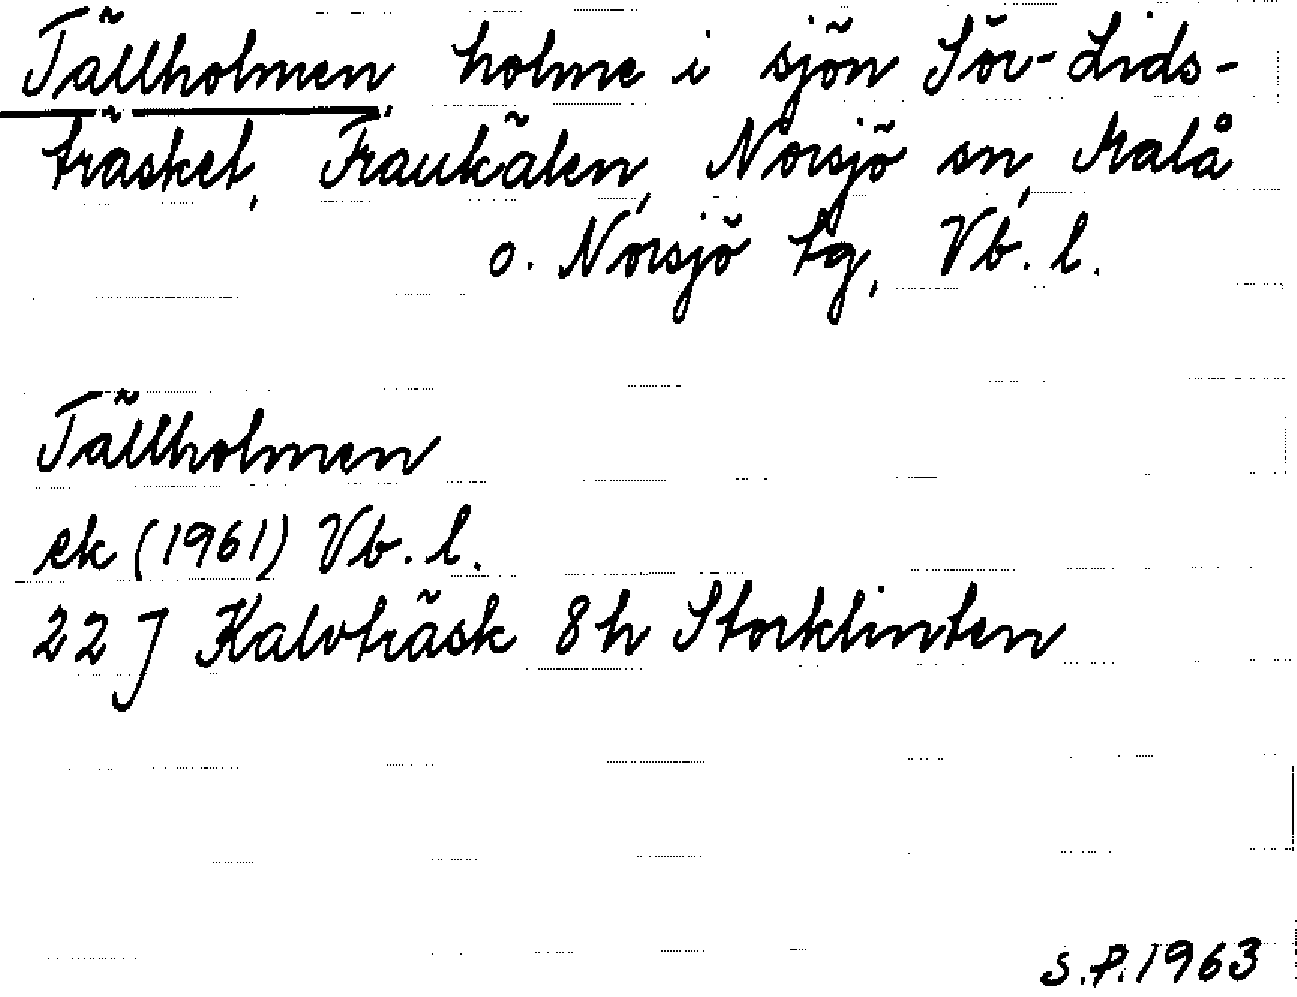 Tällholmen, holme i sjön Sör-Lids-
träsket, Fraukälen, Norsjö sn, Malå
o. Norsjö tg, Vb. l.
Tällholmen
ek (1961) Vb. l.
22 J Kalvträsk 8 h Storklinten
S.P. 1963